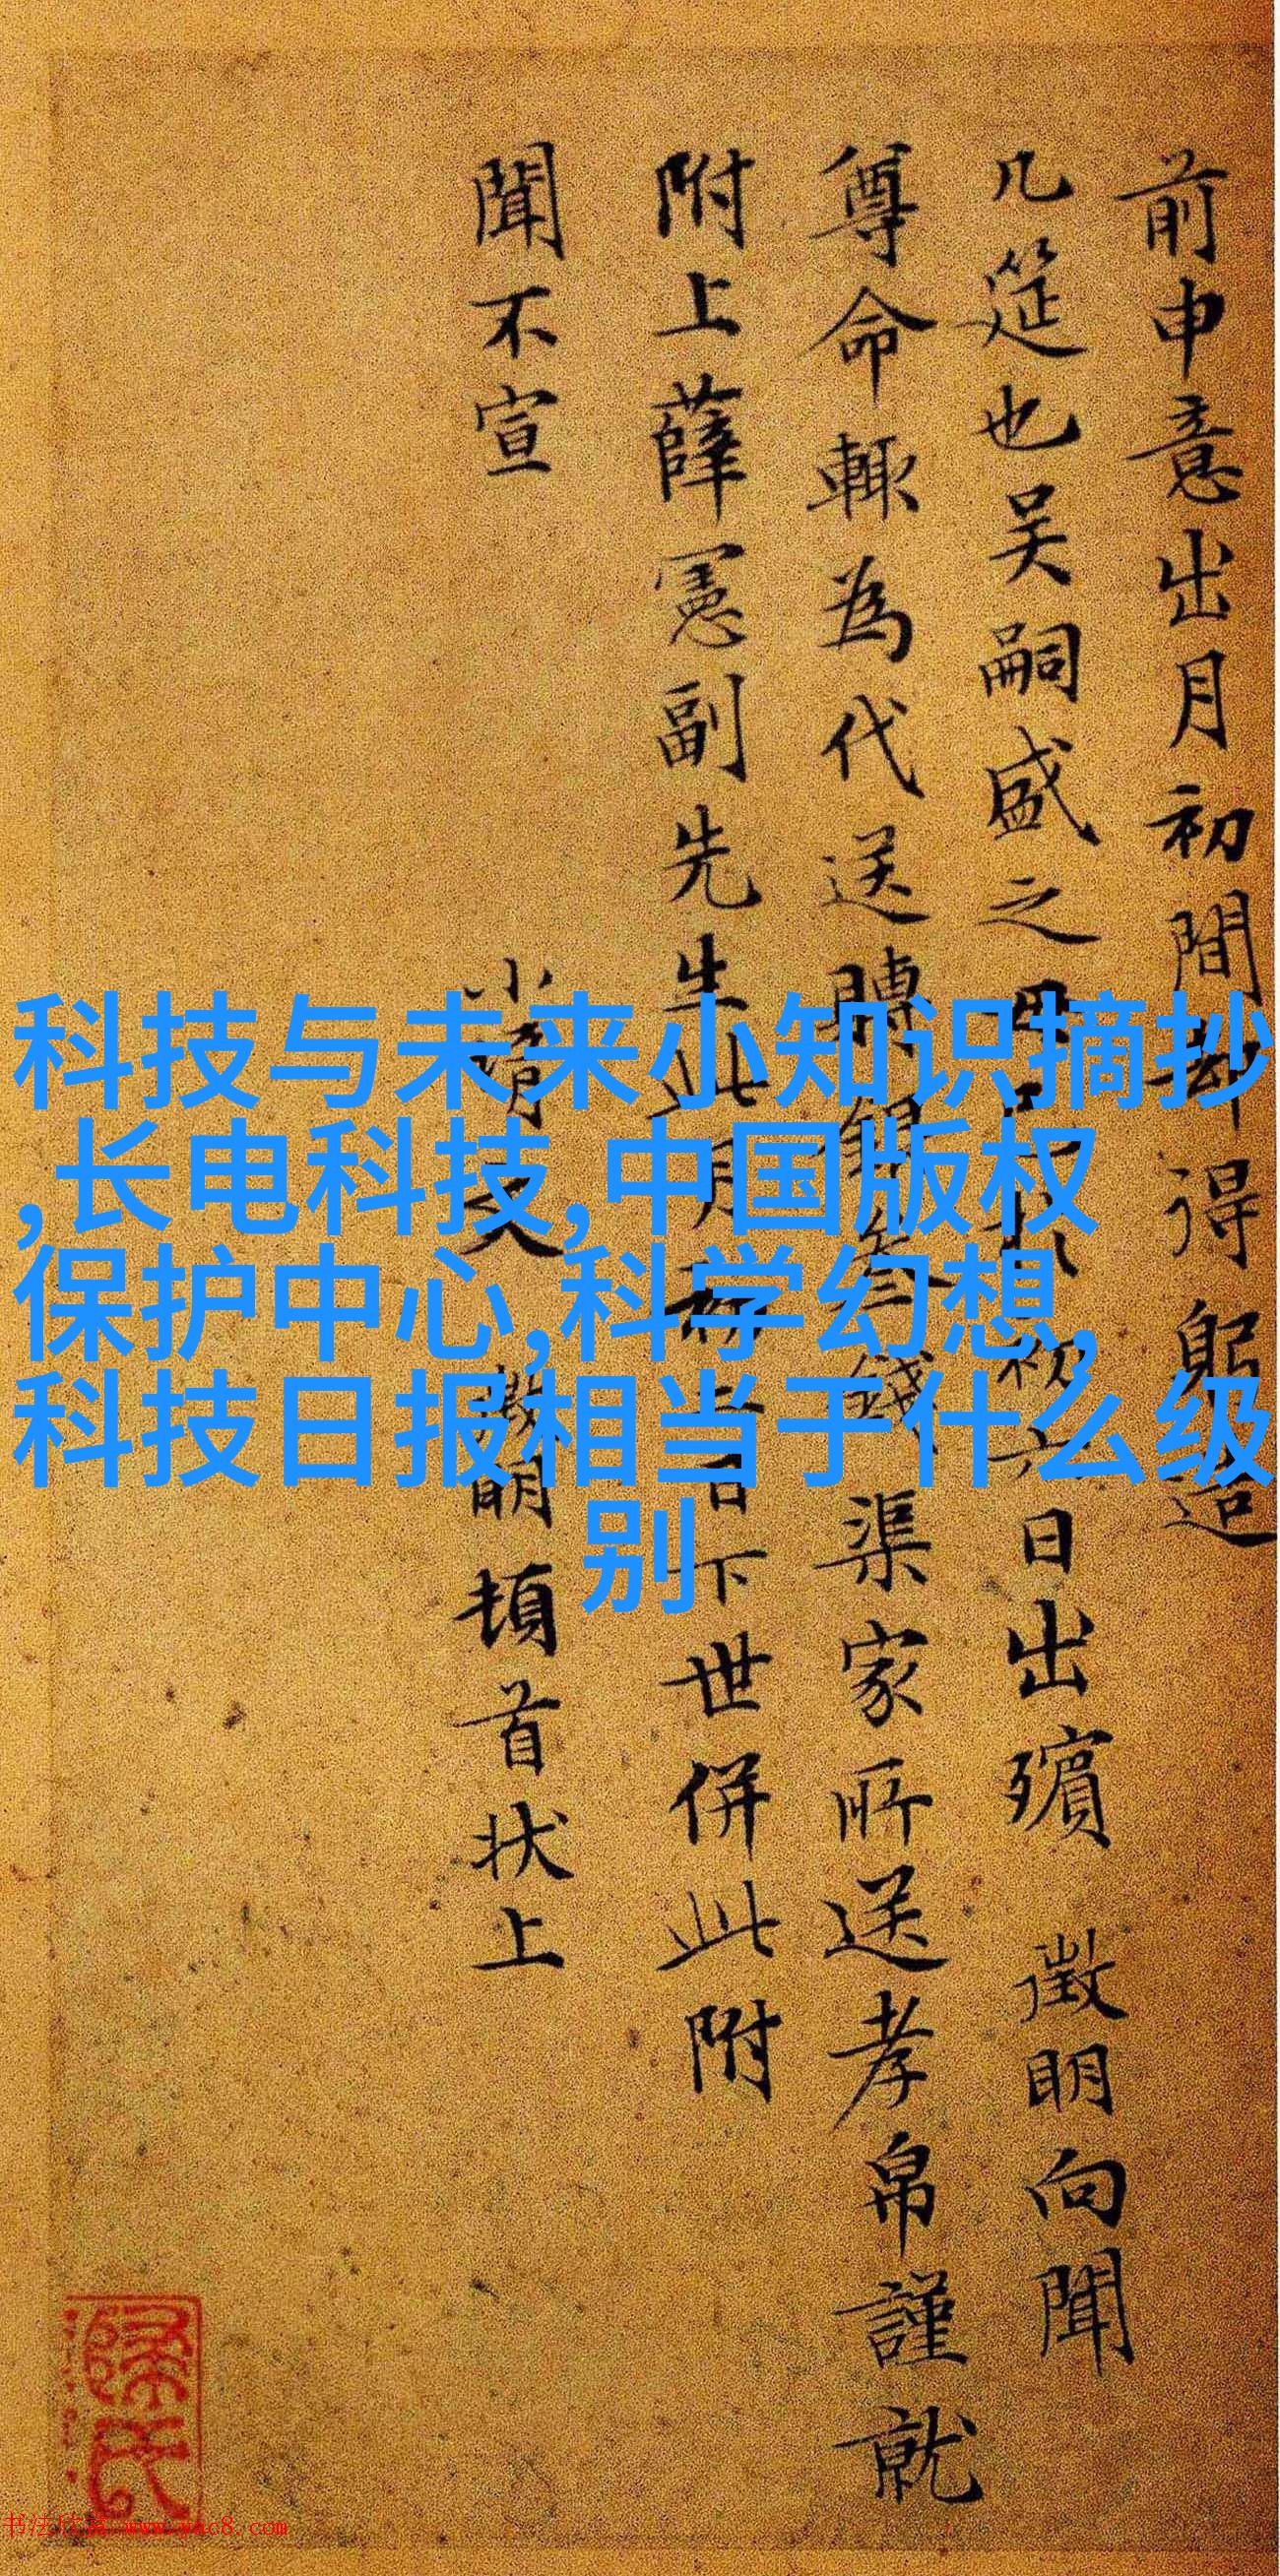 前申意出月初間却得躬造
几筵也吴嗣盛之
日出殯 徵明向聞
尊命輒為代送賻銀
渠家所送孝帛謹就
附上薛憲副先生此月初
下世併此附
聞不宣
徵明頓首狀上
科技与未来小知识摘抄
,长电科技,中国版权
保护中心,科学幻想,
科技日报相当于什么级
别
书法欣赏 www.yac8.com